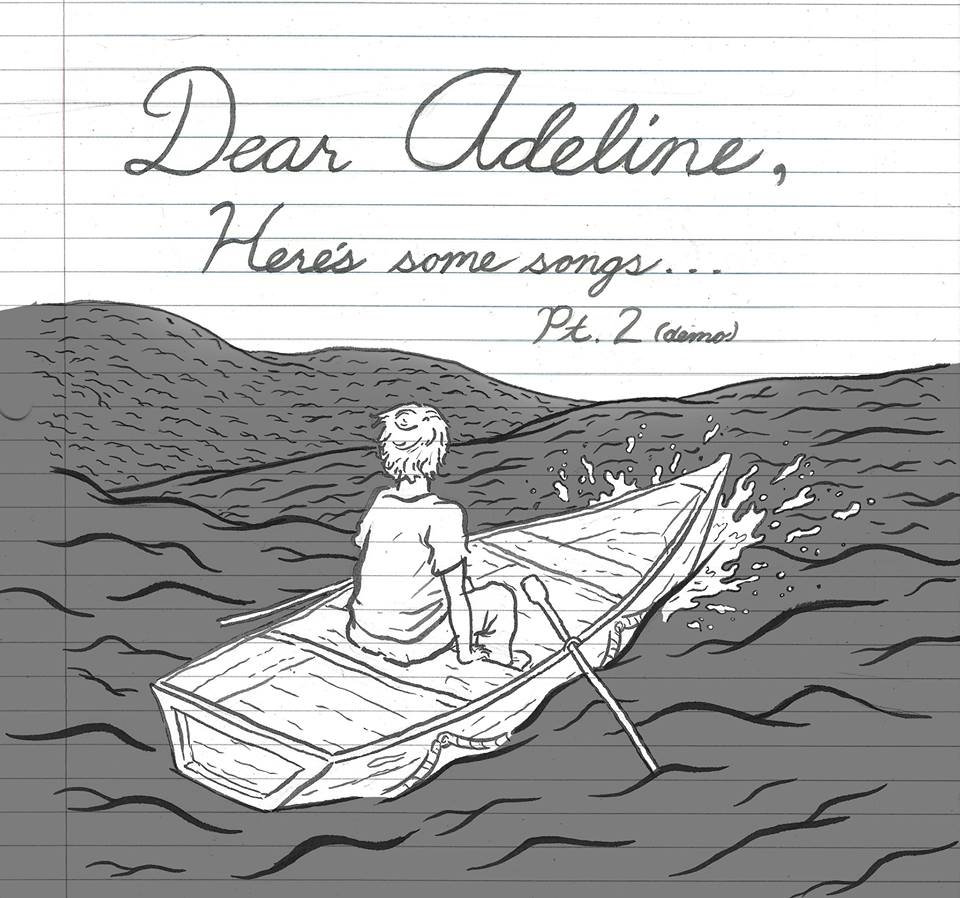 Dear Adeline,
Here's some songs...
Pt. 2 (demo)